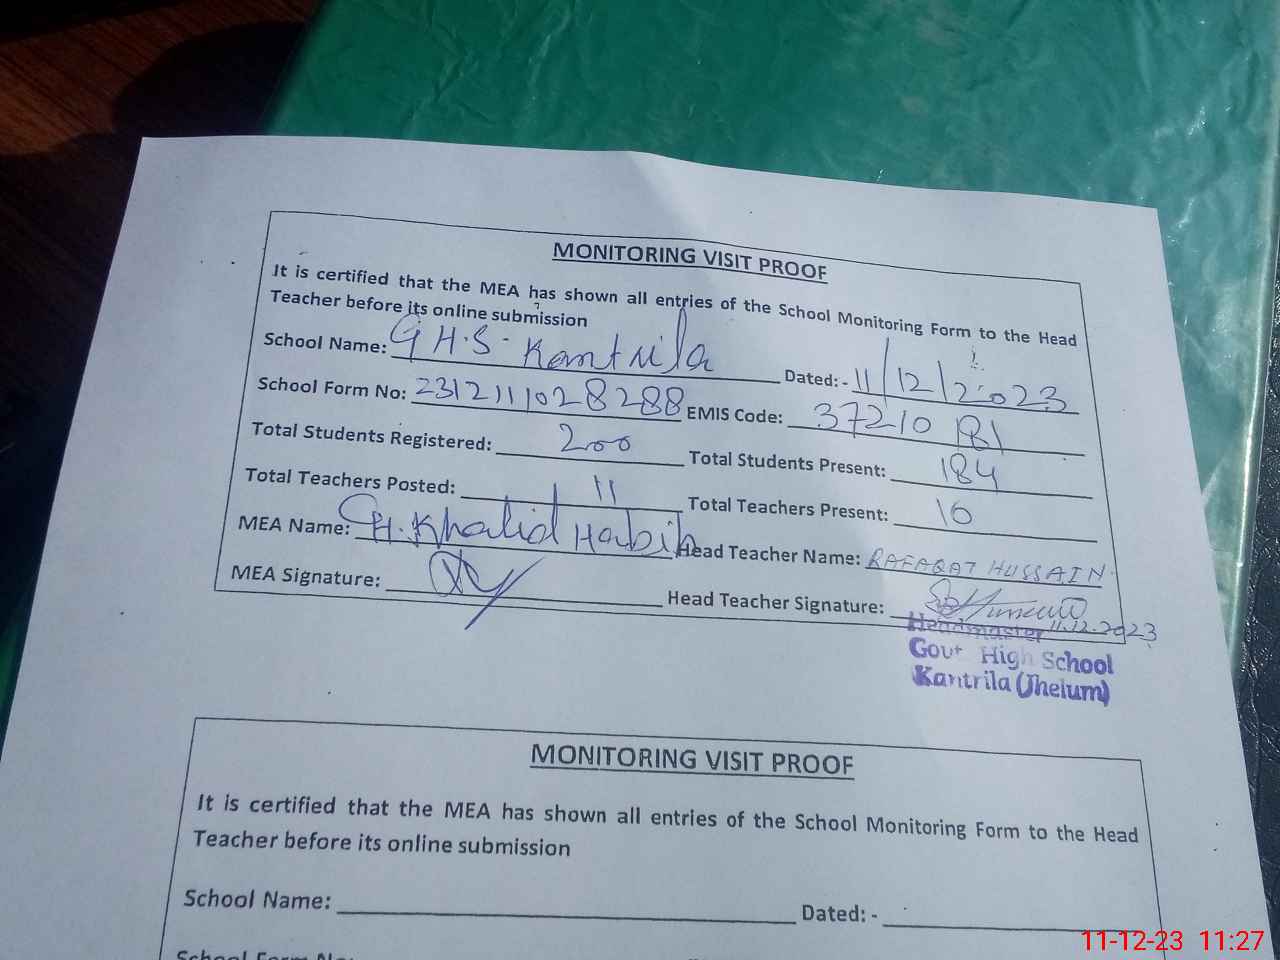 MONITORING VISIT PROOF
It is certified that the MEA has shown all entries of the School Monitoring Form to the Head
Teacher before its online submission
School Name: G H.S- Kantrila Dated: - 11/12/2023
School Form No: 2312111028288 EMIS Code: 37210181
Total Students Registered: 200 Total Students Present: 184
Total Teachers Posted: 11 Total Teachers Present: 10
MEA Name: CH. Khalid Habib Head Teacher Name: RAFAQAT HUSSAIN
MEA Signature: Head Teacher Signature:
11.12.2023
Headmaster
Govt High School
Kantrila (Jhelum)
MONITORING VISIT PROOF
It is certified that the MEA has shown all entries of the School Monitoring Form to the Head
Teacher before its online submission
School Name: Dated: -
School Form No:
11-12-23 11:27